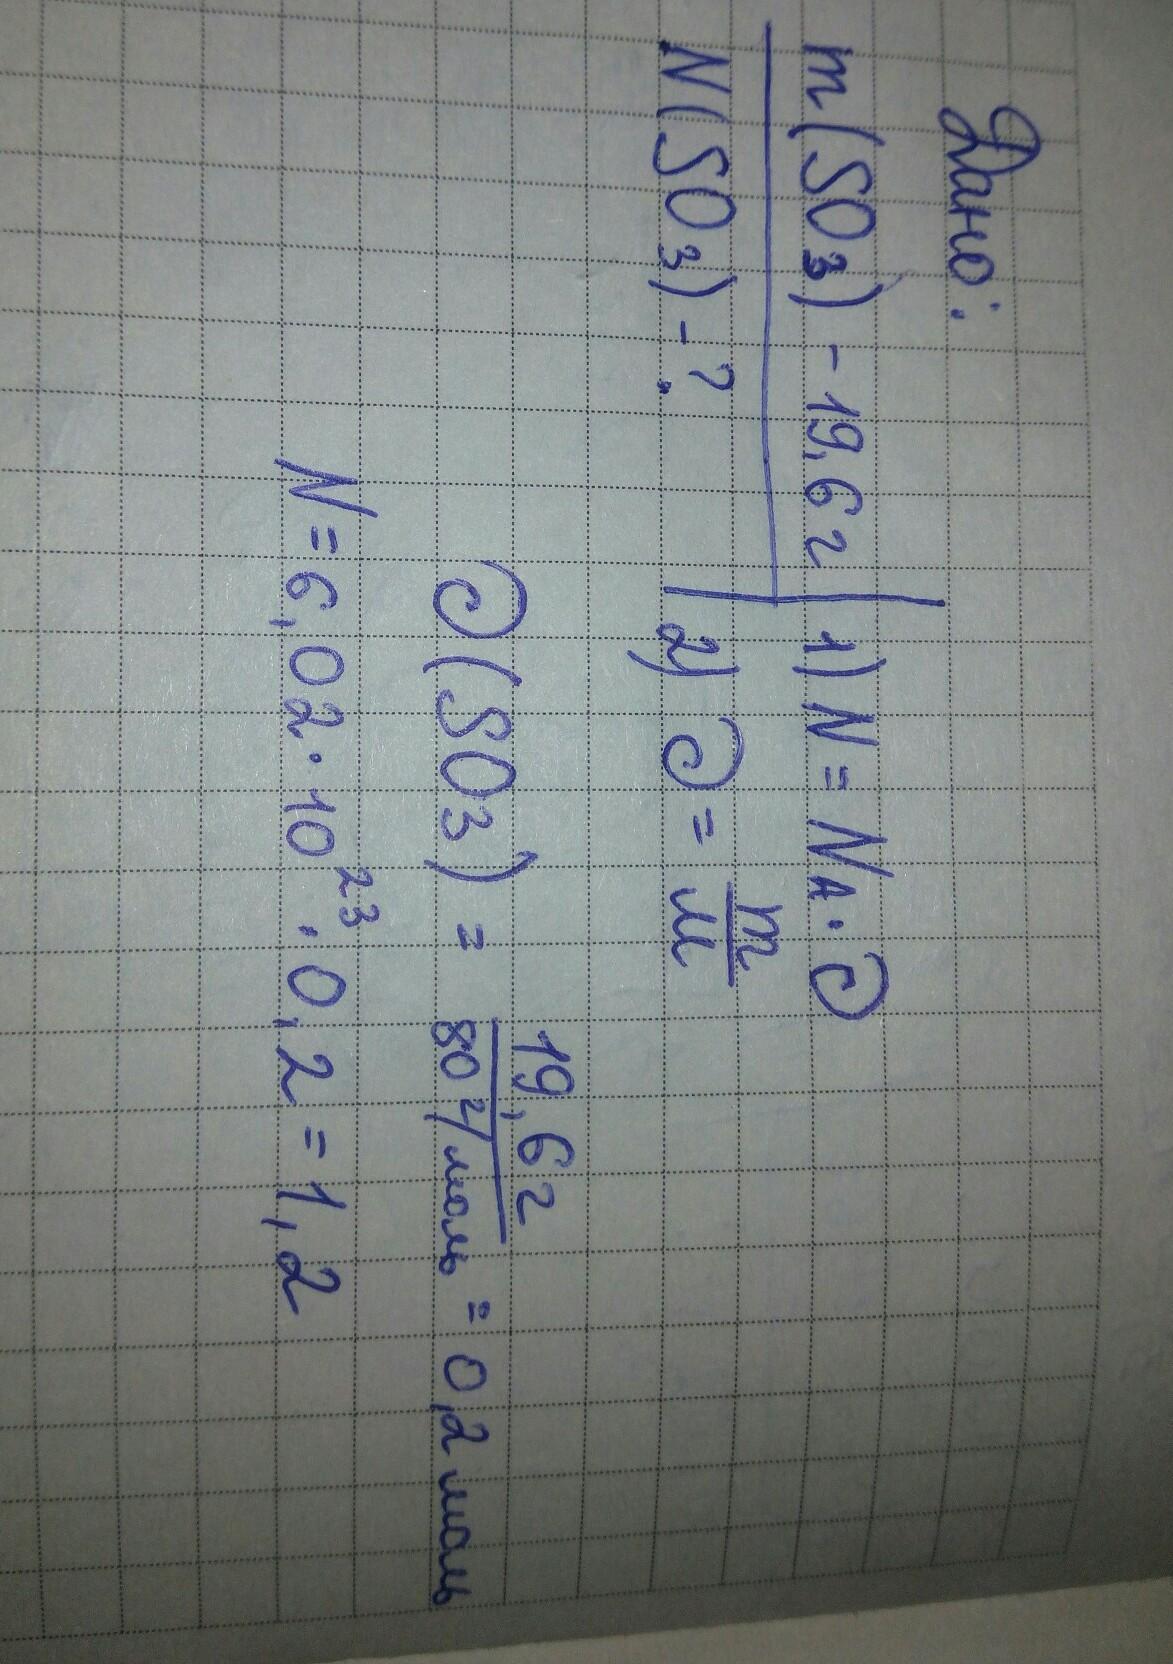 Дано:
m(SO₃) - 19,6 г
N(SO₃) - ?
1) N = Nᴀ · ∂
2) ∂ = m/M
∂(SO₃) = 19,6 г / 80 г/моль = 0,2 моль
N = 6,02 · 10²³ · 0,2 = 1,2